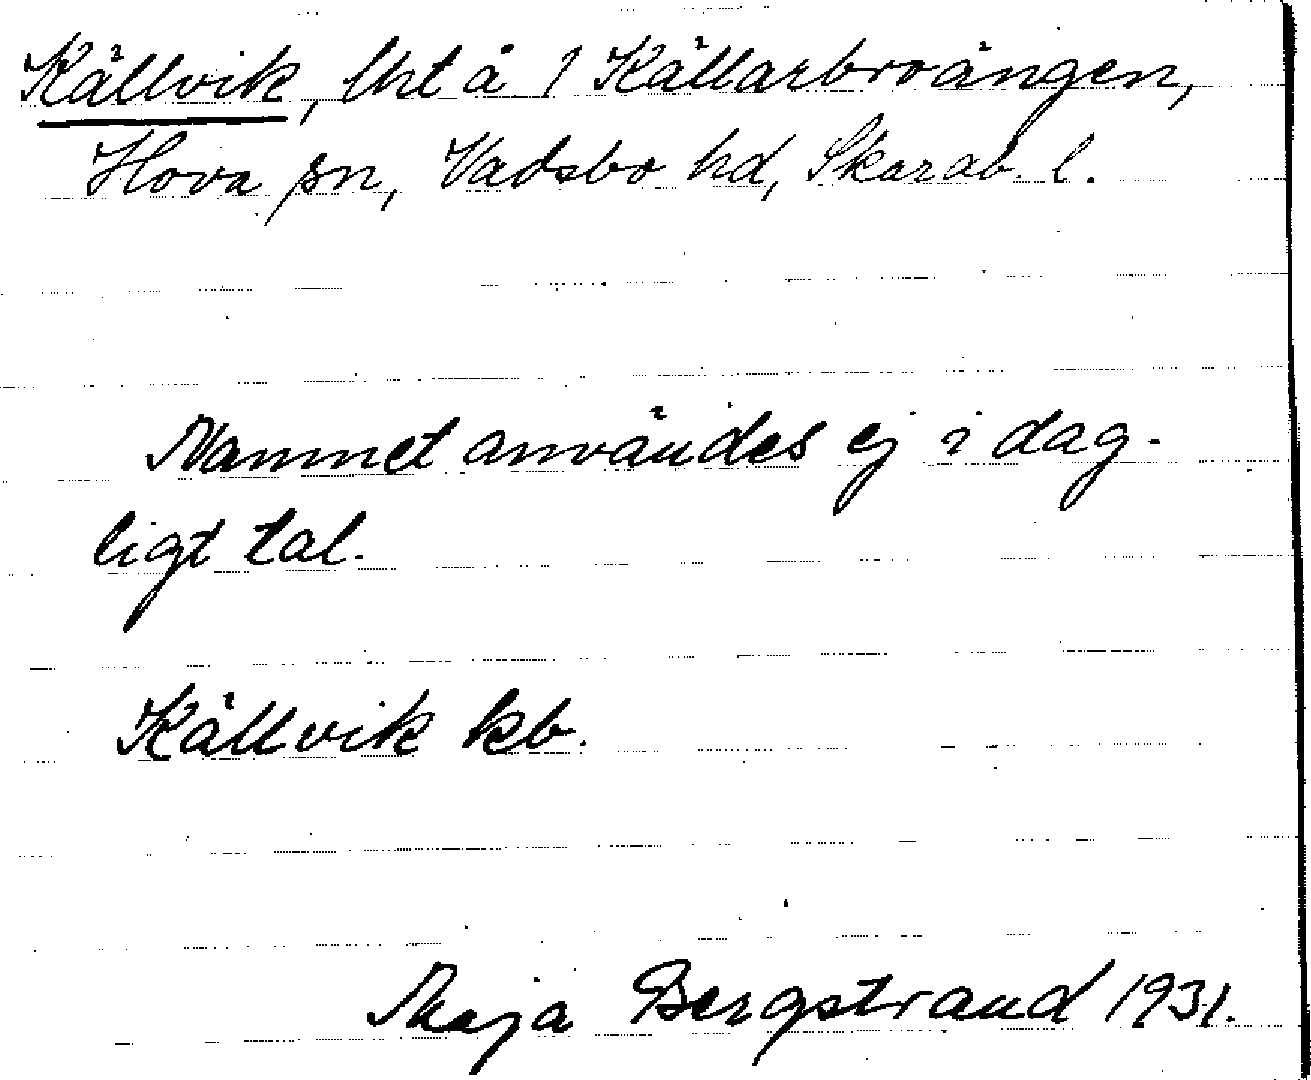 Källvik, lht å 1 Källarbroängen,
Hova sn, Vadsbo hd, Skarab. l.
Namnet användes ej i dag-
ligt tal.
Källvik kb.
Maja Bergstrand 1931.